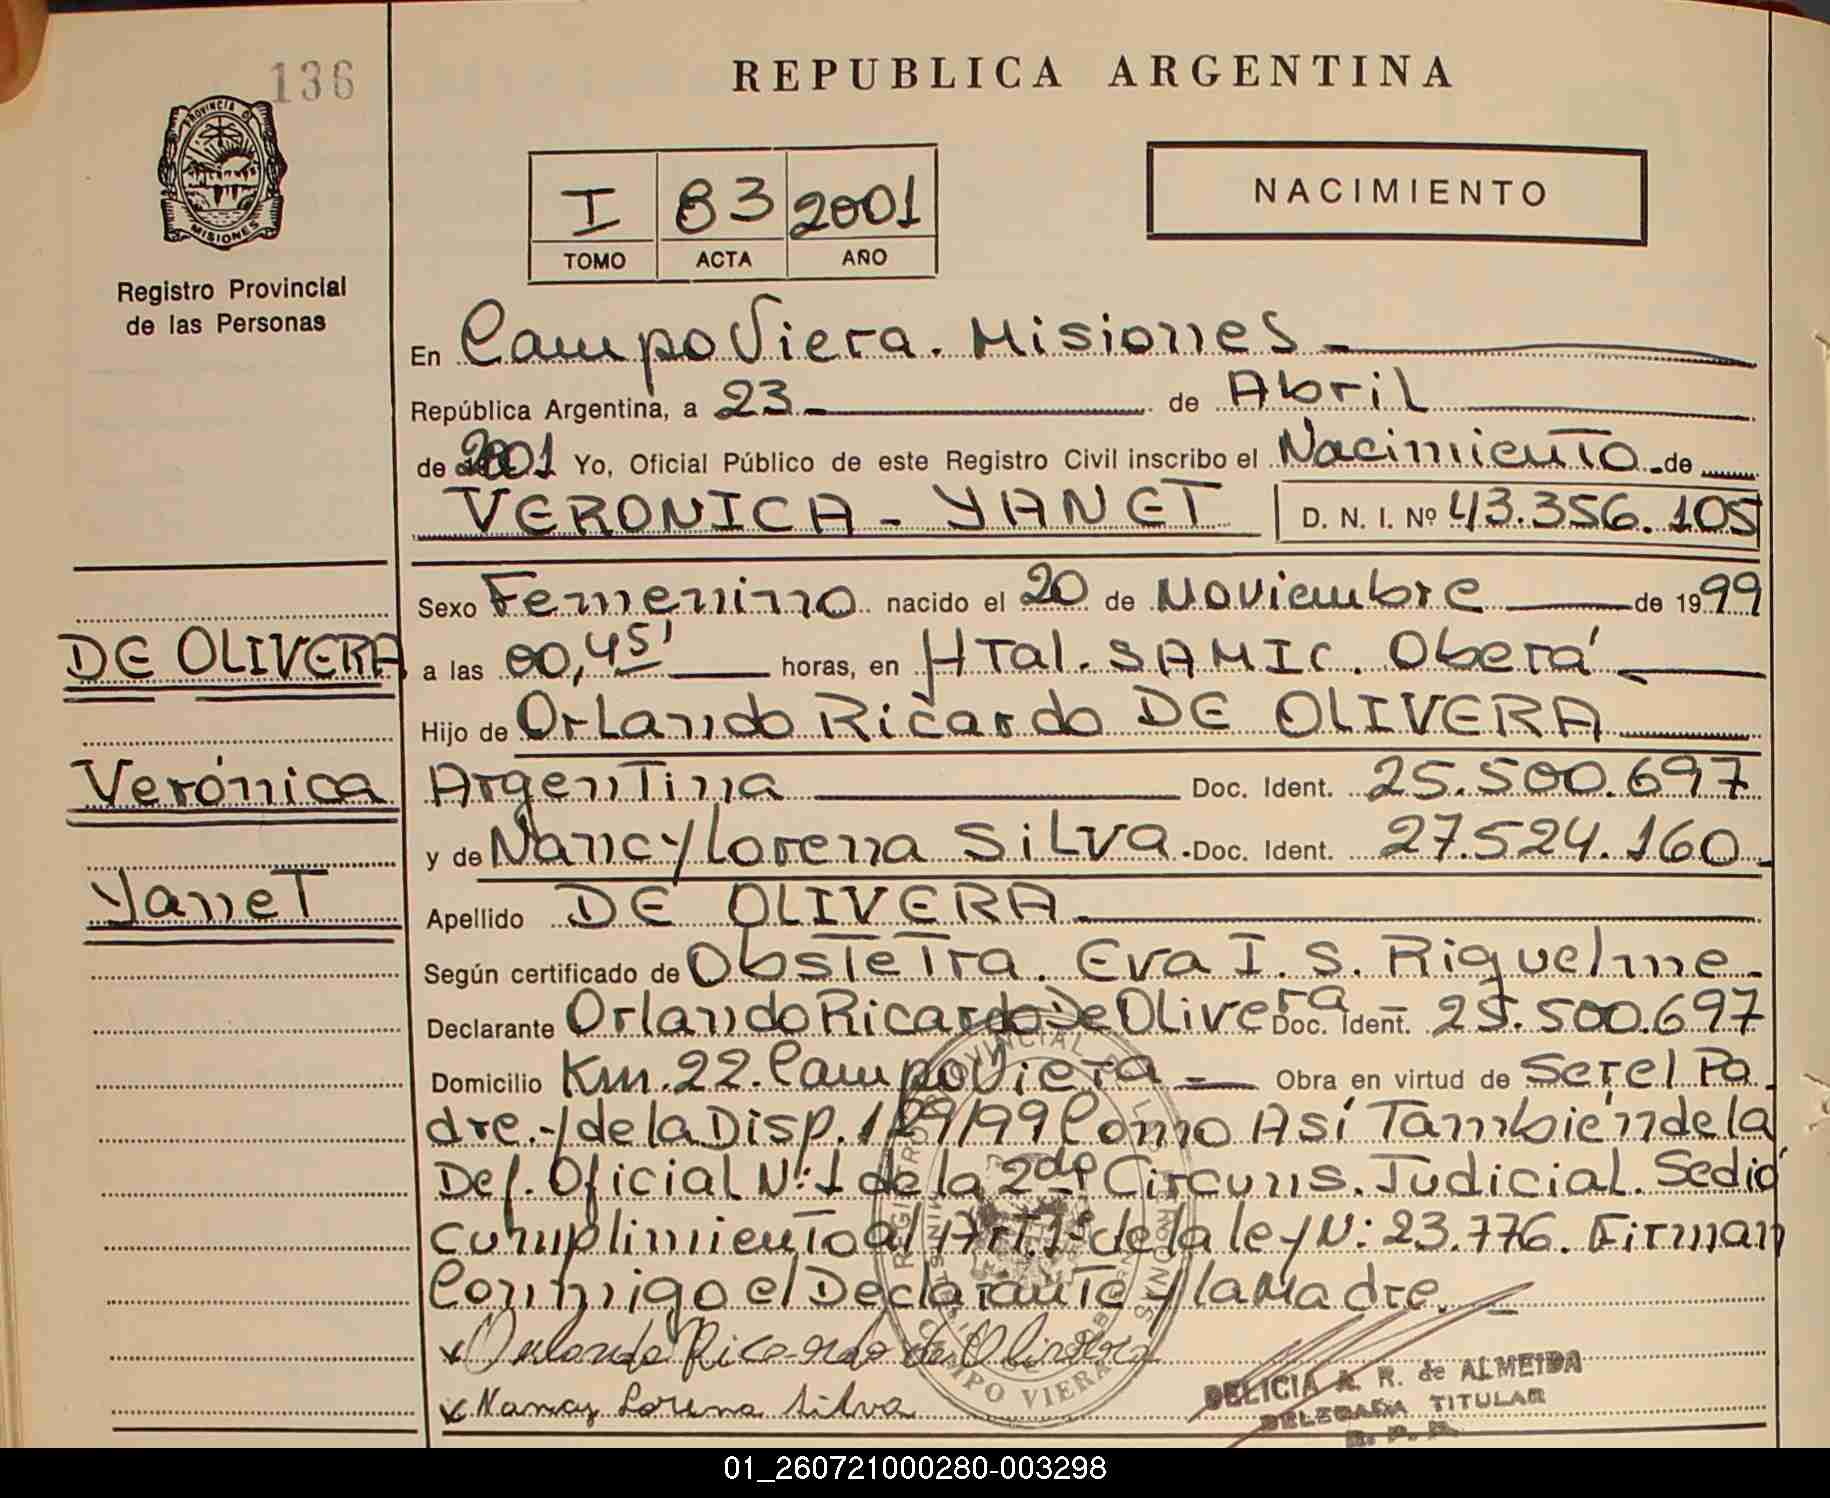 136
REPUBLICA ARGENTINA
PROVINCIA DE
MISIONES
Registro Provincial
de las Personas
I 83 2001
TOMO ACTA AÑO
NACIMIENTO
En Campo Viera. Misiones
República Argentina, a 23 de Abril
de 2001 Yo, Oficial Público de este Registro Civil inscribo el Nacimiento de
VERONICA - YANET D. N. I. Nº 43.356.105
Sexo Femenino nacido el 20 de Noviembre de 1999
DE OLIVERA
a las 00,45' horas, en HTal. SAMIC. Oberá
Hijo de Orlando Ricardo DE OLIVERA
Verónica
Argentina Doc. Ident. 25.500.697
y de Nancy Lorena Silva. Doc. Ident. 27.524.160
Yanet
Apellido DE OLIVERA
Según certificado de Obstetra. Eva I. S. Riquelme
Declarante Orlando Ricardo De Olivera Doc. Ident. 25.500.697
Domicilio Km. 22. Campo Viera Obra en virtud de Ser el Pa
dre.-y de la Disp. 129/99 Como Así También de la
Def. Oficial N:1 de la 2da Circuns. Judicial. Se dió
cumplimiento al Art. 1º de la ley N: 23.776. Firman
Conmigo el Declarante y la Madre.
x Orlando Ricardo de Olivera
x Nancy Lorena Silva
CAMPO VIERA
DELICIA A. R. de ALMEIDA
DELEGADA TITULAR
R. P. P.
01_260721000280-003298